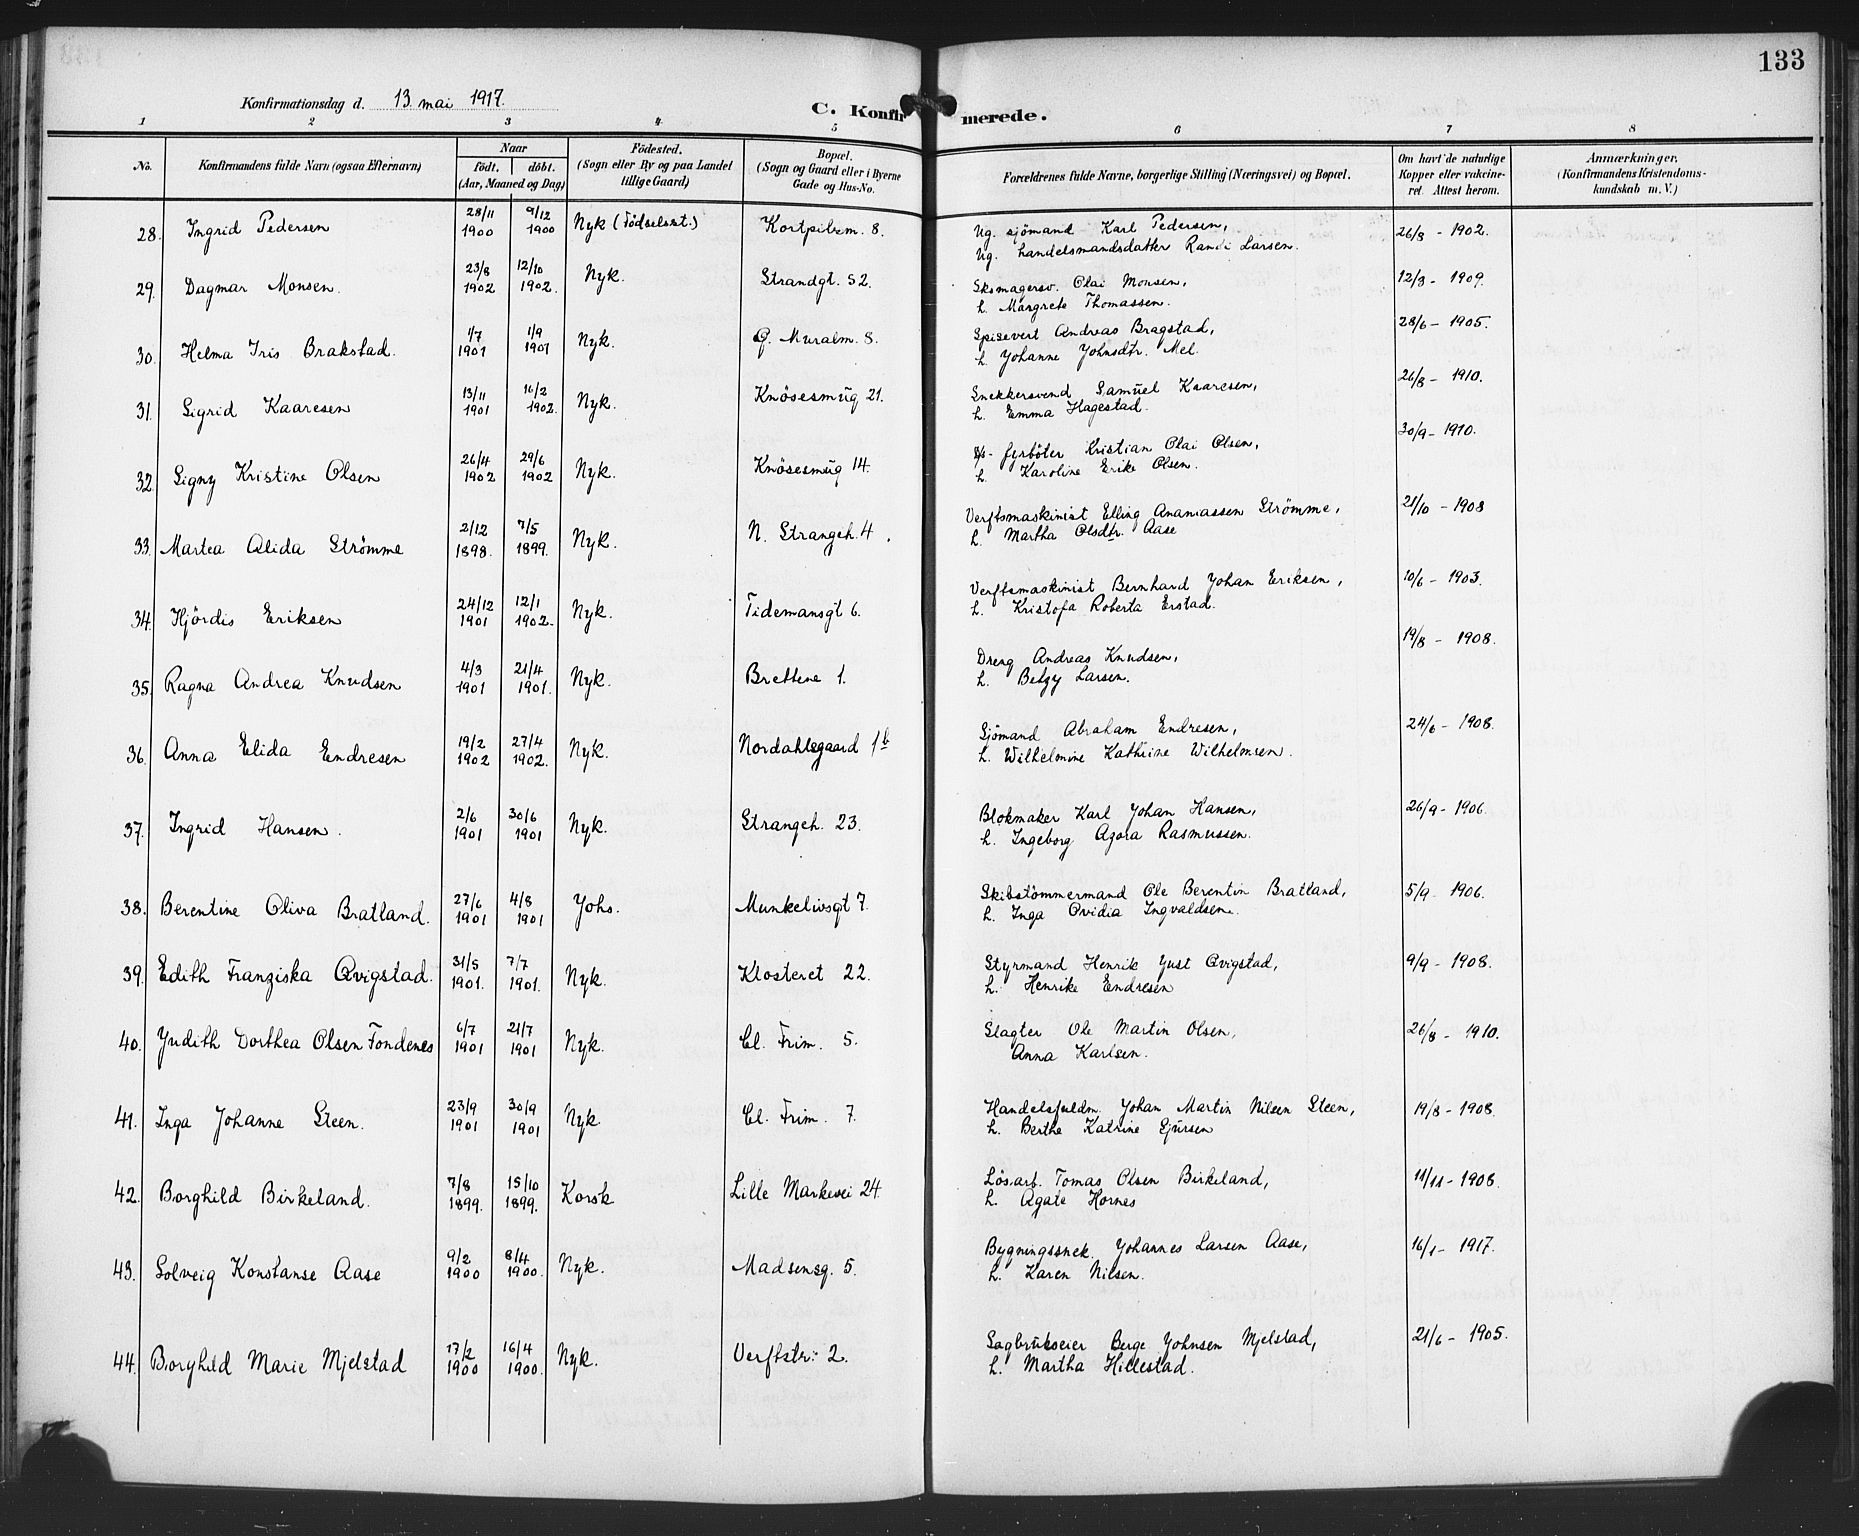 133
Konfirmationsdag d. 13. mai 1917.
C. Konfirmerede.
1 2 3 4 5 6 7 8
No. Konfirmandens fulde Navn (ogsaa Efternavn) Naar födt. döbt. (Aar, Maaned og Dag) Födested. (Sogn eller By og paa Landet tillige Gaard) Bopæl. (Sogn og Gaard eller i Byerne Gade og Hus-No. Forældrenes fulde Navne, borgerlige Stilling (Næringsvei) og Bopæl. Om havt de naturlige Kopper eller vakcineret. Attest herom. Anmærkninger. (Konfirmandens Kristendomskundskab m. V.)
28. Ingrid Pedersen 28/11 1900 9/12 1900 Nyk (Födselsst.) Kortpibem. 8. Ug. sjömand Karl Pedersen, 26/8 - 1902.
Ug. handelsmandsdatter Randi Larsen.
29. Dagmar Monsen. 23/8 1902 12/10 1902. Nyk. Strandgt. 52. Skomagersv. Olai Monsen, 12/3 - 1909.
h. Margrete Thomassen.
30. Helma Iris Brakstad. 1/7 1901 1/9 1901 Nyk. Ö. Muralm. 8. Spisevert Andreas Bragstad, 28/6 - 1905.
h. Johanne Johnsdtr. Mel.
31. Sigrid Kaaresen 13/11 1901 16/2 1902. Nyk. Knösesmug 21. Snekkersvend Samuel Kaaresen, 26/8 - 1910.
h. Emma Hagestad.
32. Signy Kristine Olsen 26/4 1902 29/6 1902 Nyk. Knösesmug 14. fyrböter Kristian Olai Olsen, 30/9 - 1910.
h. Karoline Erike Olsen.
33. Martea Alida Strömme 2/12 1898. 7/5 1899. Nyk. N. Strangeh. 4. Verftsmaskinist Elling Ananiassen Strömme, 21/10 - 1908
h. Martha Olsdtr. Aase
34. Hjördis Eriksen 24/12 1901 12/1 1902. Nyk. Tidemansgt 6. Verftsmaskinist Bernhard Johan Eriksen, 10/6 - 1903.
h. Kristofa Roberta Erstad.
35. Ragna Andrea Knudsen 4/3 1901 21/4 1901. Nyk. Brettene 1. Dreng Andreas Knudsen, 19/8 - 1908.
h. Betzy Larsen.
36. Anna Elida Endresen 19/2 1902 27/4 1902. Nyk. Nordahlsgaard 1b Sjömand Abraham Endresen, 24/6 - 1908.
h. Wilhelmine Kathrine Wilhelmsen.
37. Ingrid Hansen. 2/6 1901 30/6 1901 Nyk. Strangeh. 23. Blokmaker Karl Johan Hansen, 26/9 - 1906.
h. Ingeborg Agora Rasmussen.
38. Berentine Oliva Bratland. 27/6 1901 4/8 1901 Johs. Munkelivsgt 7. Skibstömmermand Ole Berentin Bratland, 5/9 - 1906.
h. Inga Ovidia Ingvaldsen.
39. Edith Franziska Qvigstad. 31/5 1901. 7/7 1901. Nyk. Klosteret 22. Styrmand Henrik Just Qvigstad, 9/9 - 1908.
h. Henrike Endresen
40. Judith Dorthea Olsen Fondenes 6/7 1901 21/7 1901 Nyk. Cl. Frim. 5. Slagter Ole Martin Olsen, 26/8 - 1910.
Anna Karlsen.
41. Inga Johanne Steen. 23/9 1901 30/9 1901 Nyk Cl. Frim. 7. Handelsfuldm. Johan Martin Nilsen Steen, 19/8 - 1908.
h. Berthe Katrine Sjursen
42. Borghild Birkeland. 7/8 1899. 15/10 1899. Korsk Lille Markevei 24. Lösarb. Tomas Olsen Birkeland, 11/11 - 1908.
h. Agate Hornes
43. Solveig Konstanse Aase 9/2 1900 8/4 1900. Nyk. Madsensg. 5. Bygningssnek. Johannes Larsen Aase, 16/1 - 1917.
h. Karen Nilsen.
44. Borghild Marie Mjelstad 17/2 1900 16/4 1900. Nyk. Verftstr: 2. Sagbrukseier Berge Johnsen Mjelstad, 21/6 - 1905.
h. Martha Hillestad.